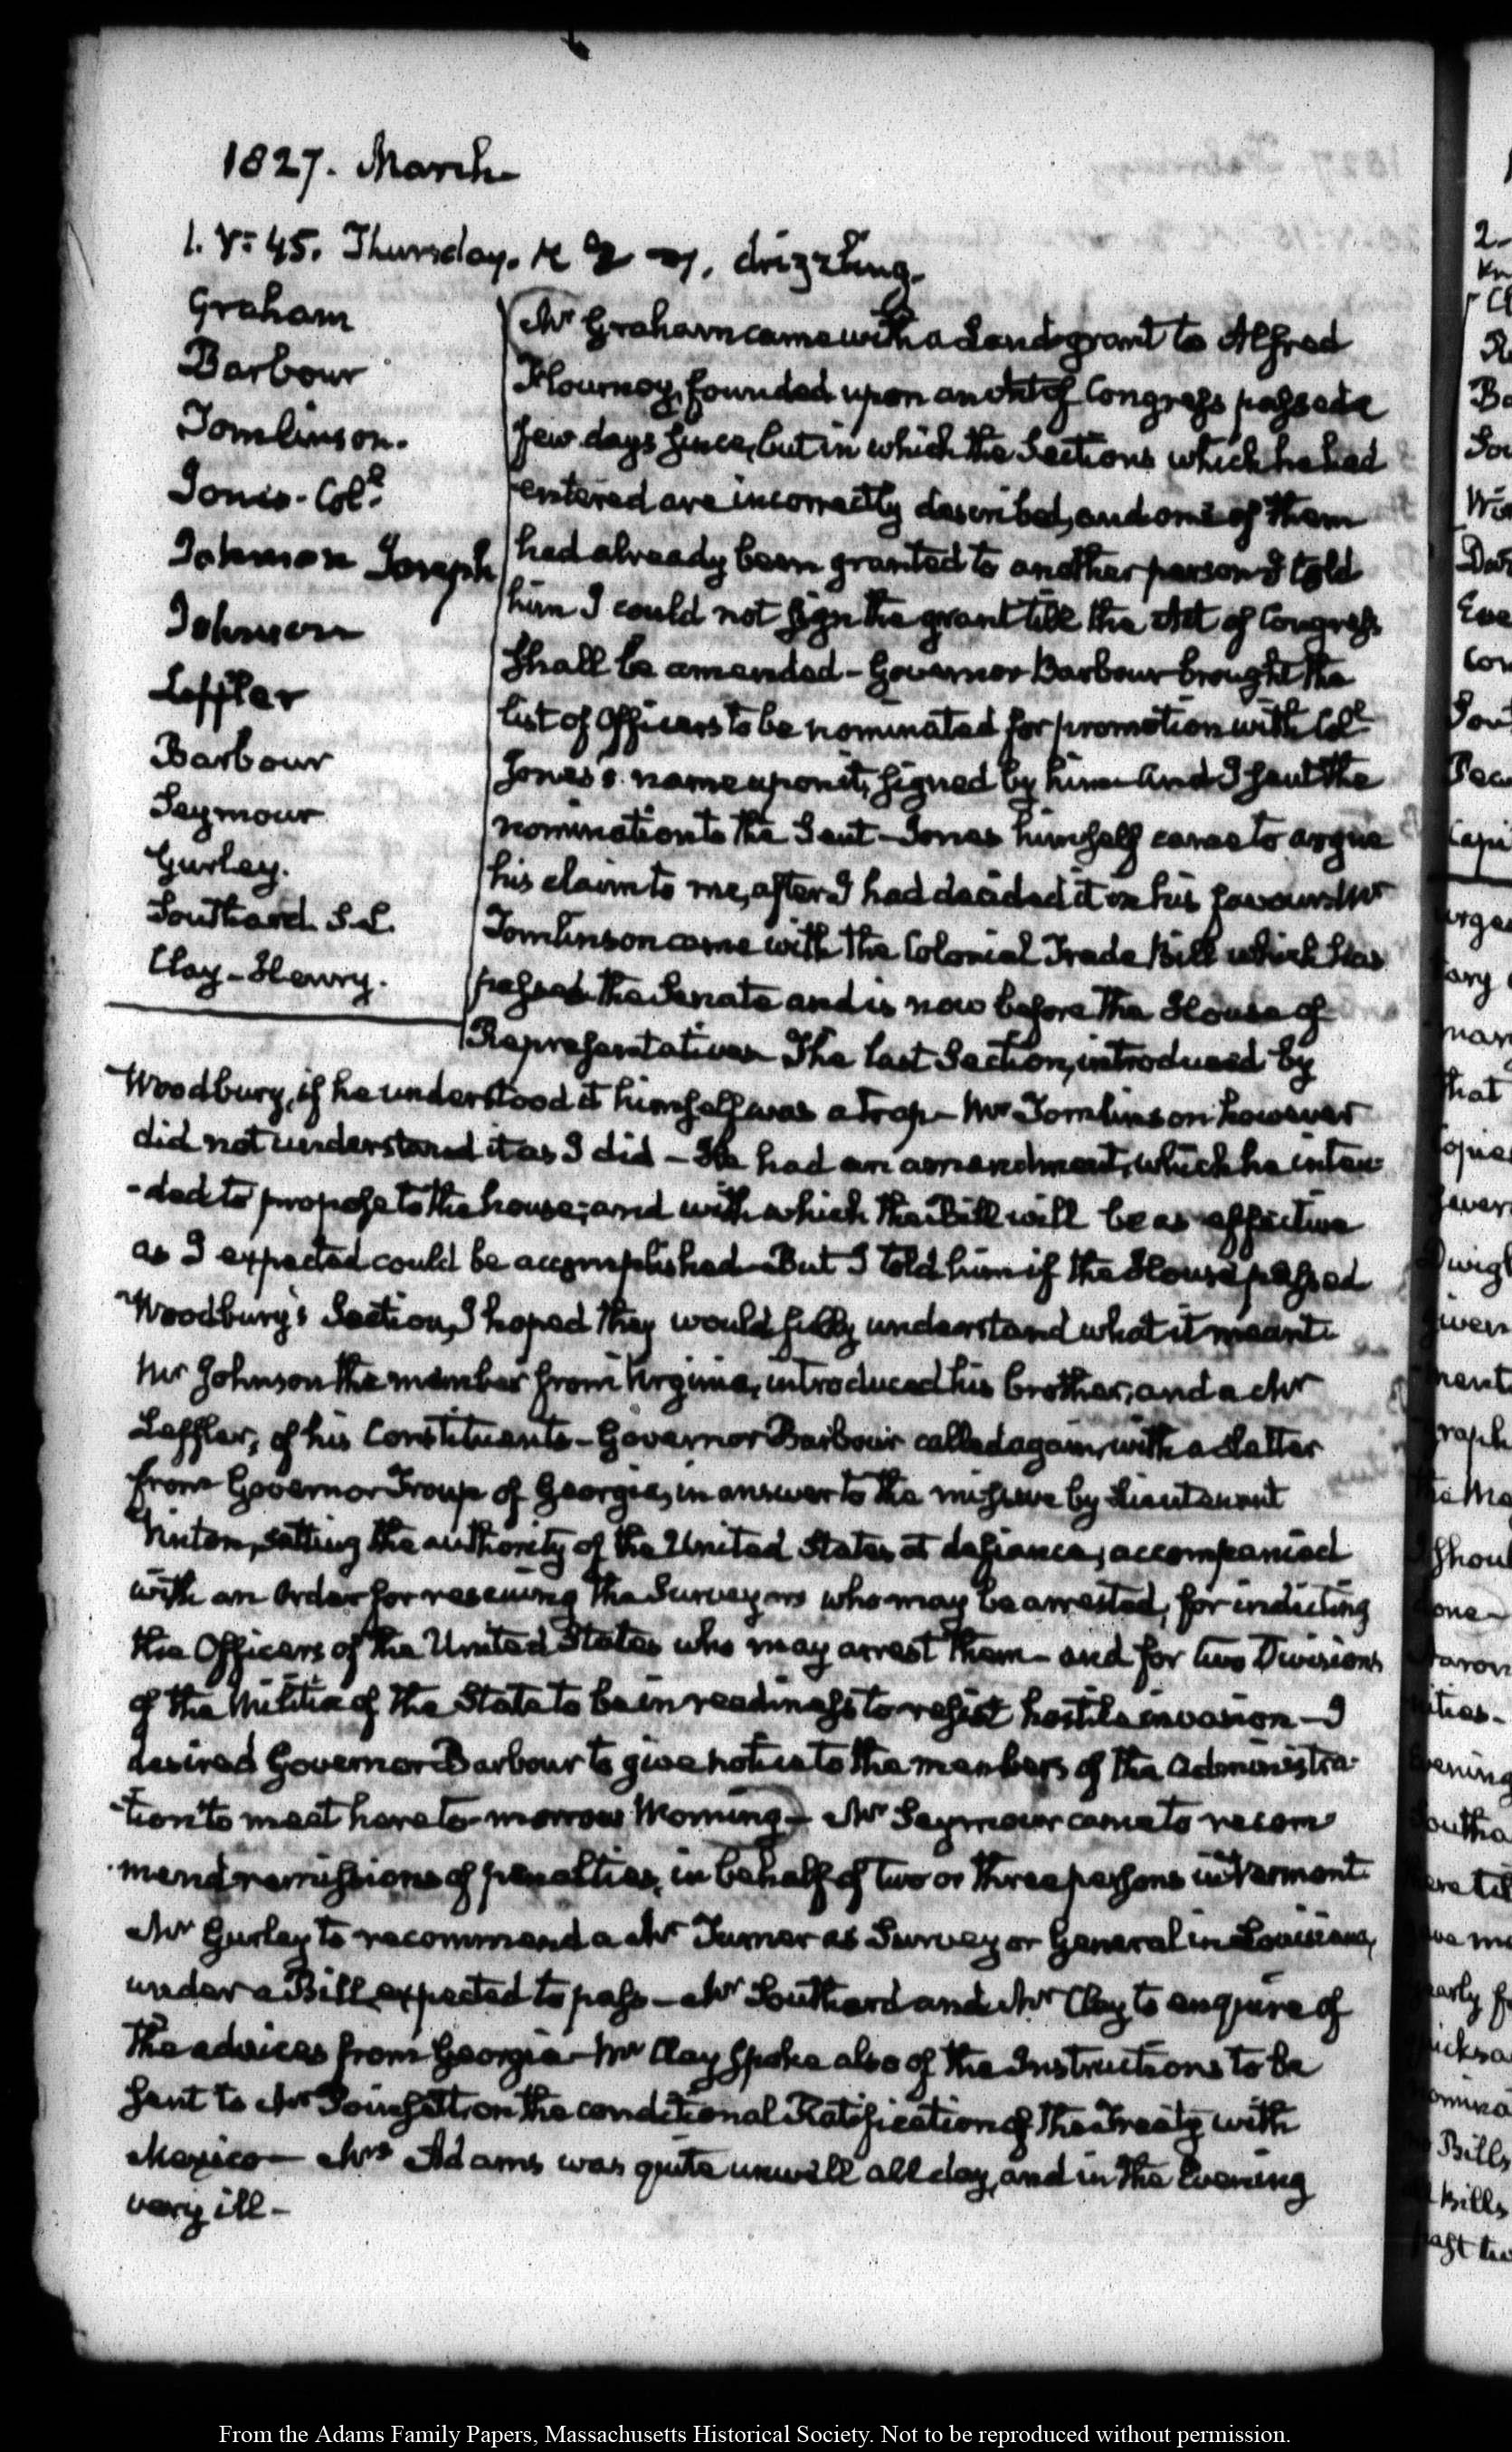 1827. March
1. V: 45. Thursday. drizzling.
Graham
Barbour
Tomlinson.
Jones-Coll.
Johnson Joseph
Johnson
Leffler
Barbour
Seymour
Gurley.
Southard. S.L.
Clay-Henry.
Mr Graham came with a Land grant to Alfred
Flournoy, founded upon an Act of Congress passed a
few days since, but in which the Sections which he had
entered are incorrectly described, and one of them
had already been granted to another person I told
him I could not sign the grant till the Act of Congress
shall be amended - Governor Barbour brought the
list of Officers to be nominated for promotion with Coll
Jones's name upon it, signed by him and I sent the
nomination to the Senate - Jones himself came to argue
his claim to me, after I had decided it in his favour. Mr
Tomlinson came with the Colonial Trade Bill which has
passed the Senate and is now before the House of
Representatives The last Section, introduced by
Woodbury, if he understood it himself was a trap - Mr Tomlinson however
did not understand it as I did - He had an amendment, which he inten-
-ded to propose to the house; and with which the Bill will be as effective
as I expected could be accomplished - But I told him if the House passed
Woodbury's Section, I hoped they would fully understand what it meant.
Mr Johnson the member from Virginia, introduced his brother, and a Mr
Leffler, of his Constituents - Governor Barbour called again, with a Letter
from Governor Troup of Georgia, in answer to the missive by Lieutenant
Vinton, setting the authority of the United States at defiance, accompanied
with an Order for rescuing the Surveyors who may be arrested, for indicting
the Officers of the United States who may arrest them - and for two Divisions
of the Militia of the State to be in readiness to resist hostile invasion - I
desired Governor Barbour to give notice to the members of the Administra-
-tion to meet here to-morrow Morning - Mr Seymour came to recom
mend remissions of penalties, in behalf of two or three persons in Vermont.
Mr Gurley to recommend a Mr Turner as Surveyor General in Louisiana,
under a Bill expected to pass - Mr Southard and Mr Clay to enquire of
the advices from Georgia - Mr Clay spoke also of the Instructions to be
sent to Mr Poinsett, on the conditional Ratification of the Treaty with
Mexico - Mrs Adams was quite unwell all day, and in the Evening
very ill -
From the Adams Family Papers, Massachusetts Historical Society. Not to be reproduced without permission.